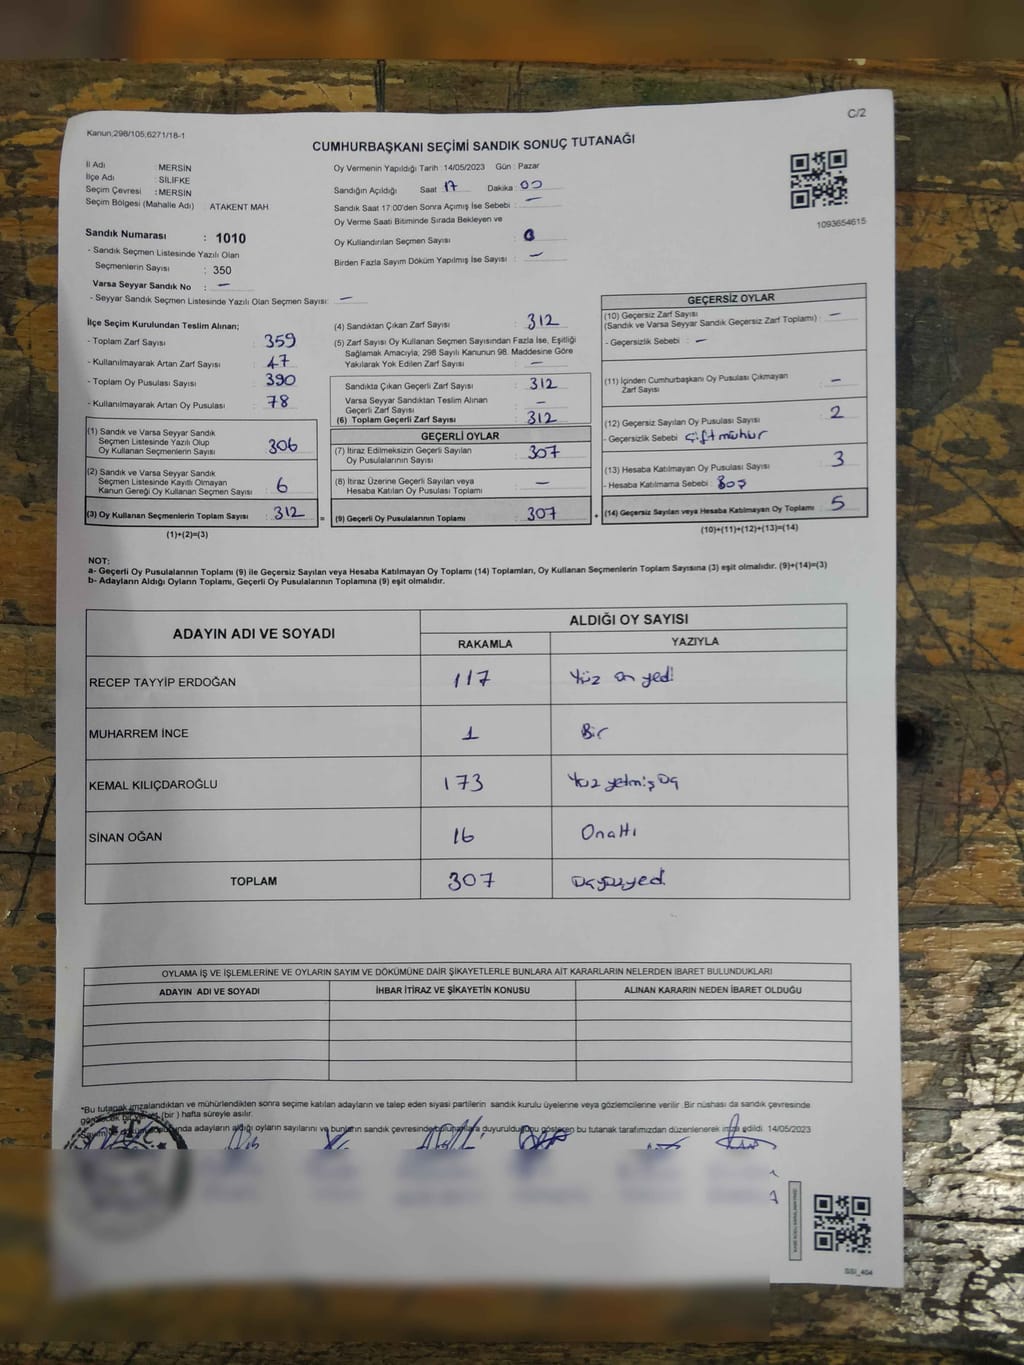 C/2
Kanun;298/105;6271/18-1
CUMHURBAŞKANI SEÇİMİ SANDIK SONUÇ TUTANAĞI
İl Adı MERSİN
İlçe Adı SİLİFKE
Seçim Çevresi : MERSİN
Seçim Bölgesi (Mahalle Adı) : ATAKENT MAH.
Oy Vermenin Yapıldığı Tarih : 14/05/2023 Gün : Pazar
Sandığın Açıldığı Saat 17 Dakika : 00
Sandık Saat 17:00'den Sonra Açımış İse Sebebi : —
Oy Verme Saati Bitiminde Sırada Bekleyen ve
Oy Kullandırılan Seçmen Sayısı : 0
Birden Fazla Sayım Döküm Yapılmış İse Sayısı : —
1093654615
Sandık Numarası : 1010
- Sandık Seçmen Listesinde Yazılı Olan
Seçmenlerin Sayısı : 350
Varsa Seyyar Sandık No : —
- Seyyar Sandık Seçmen Listesinde Yazılı Olan Seçmen Sayısı: —
İlçe Seçim Kurulundan Teslim Alınan;
- Toplam Zarf Sayısı : 359
- Kullanılmayarak Artan Zarf Sayısı : 47
- Toplam Oy Pusulası Sayısı : 390
- Kullanılmayarak Artan Oy Pusulası : 78
(1) Sandık ve Varsa Seyyar Sandık
Seçmen Listesinde Yazılı Olup
Oy Kullanan Seçmenlerin Sayısı : 306
(2) Sandık ve Varsa Seyyar Sandık
Seçmen Listesinde Kayıtlı Olmayan
Kanun Gereği Oy Kullanan Seçmen Sayısı : 6
(3) Oy Kullanan Seçmenlerin Toplam Sayısı : 312 =
(1)+(2)=(3)
(4) Sandıktan Çıkan Zarf Sayısı : 312
(5) Zarf Sayısı Oy Kullanan Seçmen Sayısından Fazla İse, Eşitliği
Sağlamak Amacıyla; 298 Sayılı Kanunun 98. Maddesine Göre
Yakılarak Yok Edilen Zarf Sayısı : —
Sandıkta Çıkan Geçerli Zarf Sayısı : 312
Varsa Seyyar Sandıktan Teslim Alınan
Geçerli Zarf Sayısı : —
(6) Toplam Geçerli Zarf Sayısı : 312
GEÇERLİ OYLAR
(7) İtiraz Edilmeksizin Geçerli Sayılan
Oy Pusulalarının Sayısı : 307
(8) İtiraz Üzerine Geçerli Sayılan veya
Hesaba Katılan Oy Pusulası Toplamı : —
(9) Geçerli Oy Pusulalarının Toplamı : 307 +
GEÇERSİZ OYLAR
(10) Geçersiz Zarf Sayısı
(Sandık ve Varsa Seyyar Sandık Geçersiz Zarf Toplamı) : —
- Geçersizlik Sebebi : —
(11) İçinden Cumhurbaşkanı Oy Pusulası Çıkmayan
Zarf Sayısı : —
(12) Geçersiz Sayılan Oy Pusulası Sayısı : 2
- Geçersizlik Sebebi : Çift mühür
(13) Hesaba Katılmayan Oy Pusulası Sayısı : 3
- Hesaba Katılmama Sebebi : Boş
(14) Geçersiz Sayılan veya Hesaba Katılmayan Oy Toplamı : 5
(10)+(11)+(12)+(13)=(14)
NOT:
a- Geçerli Oy Pusulalarının Toplamı (9) ile Geçersiz Sayılan veya Hesaba Katılmayan Oy Toplamı (14) Toplamları, Oy Kullanan Seçmenlerin Toplam Sayısına (3) eşit olmalıdır. (9)+(14)=(3)
b- Adayların Aldığı Oyların Toplamı, Geçerli Oy Pusulalarının Toplamına (9) eşit olmalıdır.
ADAYIN ADI VE SOYADI ALDIĞI OY SAYISI
RAKAMLA YAZIYLA
RECEP TAYYİP ERDOĞAN 117 Yüz on yedi
MUHARREM İNCE 1 Bir
KEMAL KILIÇDAROĞLU 173 Yüz yetmiş üç
SİNAN OĞAN 16 Onaltı
TOPLAM 307 üçyüzyedi
OYLAMA İŞ VE İŞLEMLERİNE VE OYLARIN SAYIM VE DÖKÜMÜNE DAİR ŞİKAYETLERLE BUNLARA AİT KARARLARIN NELERDEN İBARET BULUNDUKLARI
ADAYIN ADI VE SOYADI İHBAR İTİRAZ VE ŞİKAYETİN KONUSU ALINAN KARARIN NEDEN İBARET OLDUĞU
*Bu tutanak imzalandıktan ve mühürlendikten sonra seçime katılan adayların ve talep eden siyasi partilerin sandık kurulu üyelerine veya gözlemcilerine verilir. Bir nüshası da sandık çevresinde
(bir) hafta süreyle asılır.
adayların aldığı oyların sayılarını ve bunların sandık çevresinde duyurulduğunu gösteren bu tutanak tarafımızdan düzenlenerek imza edildi. 14/05/2023
SSI_404